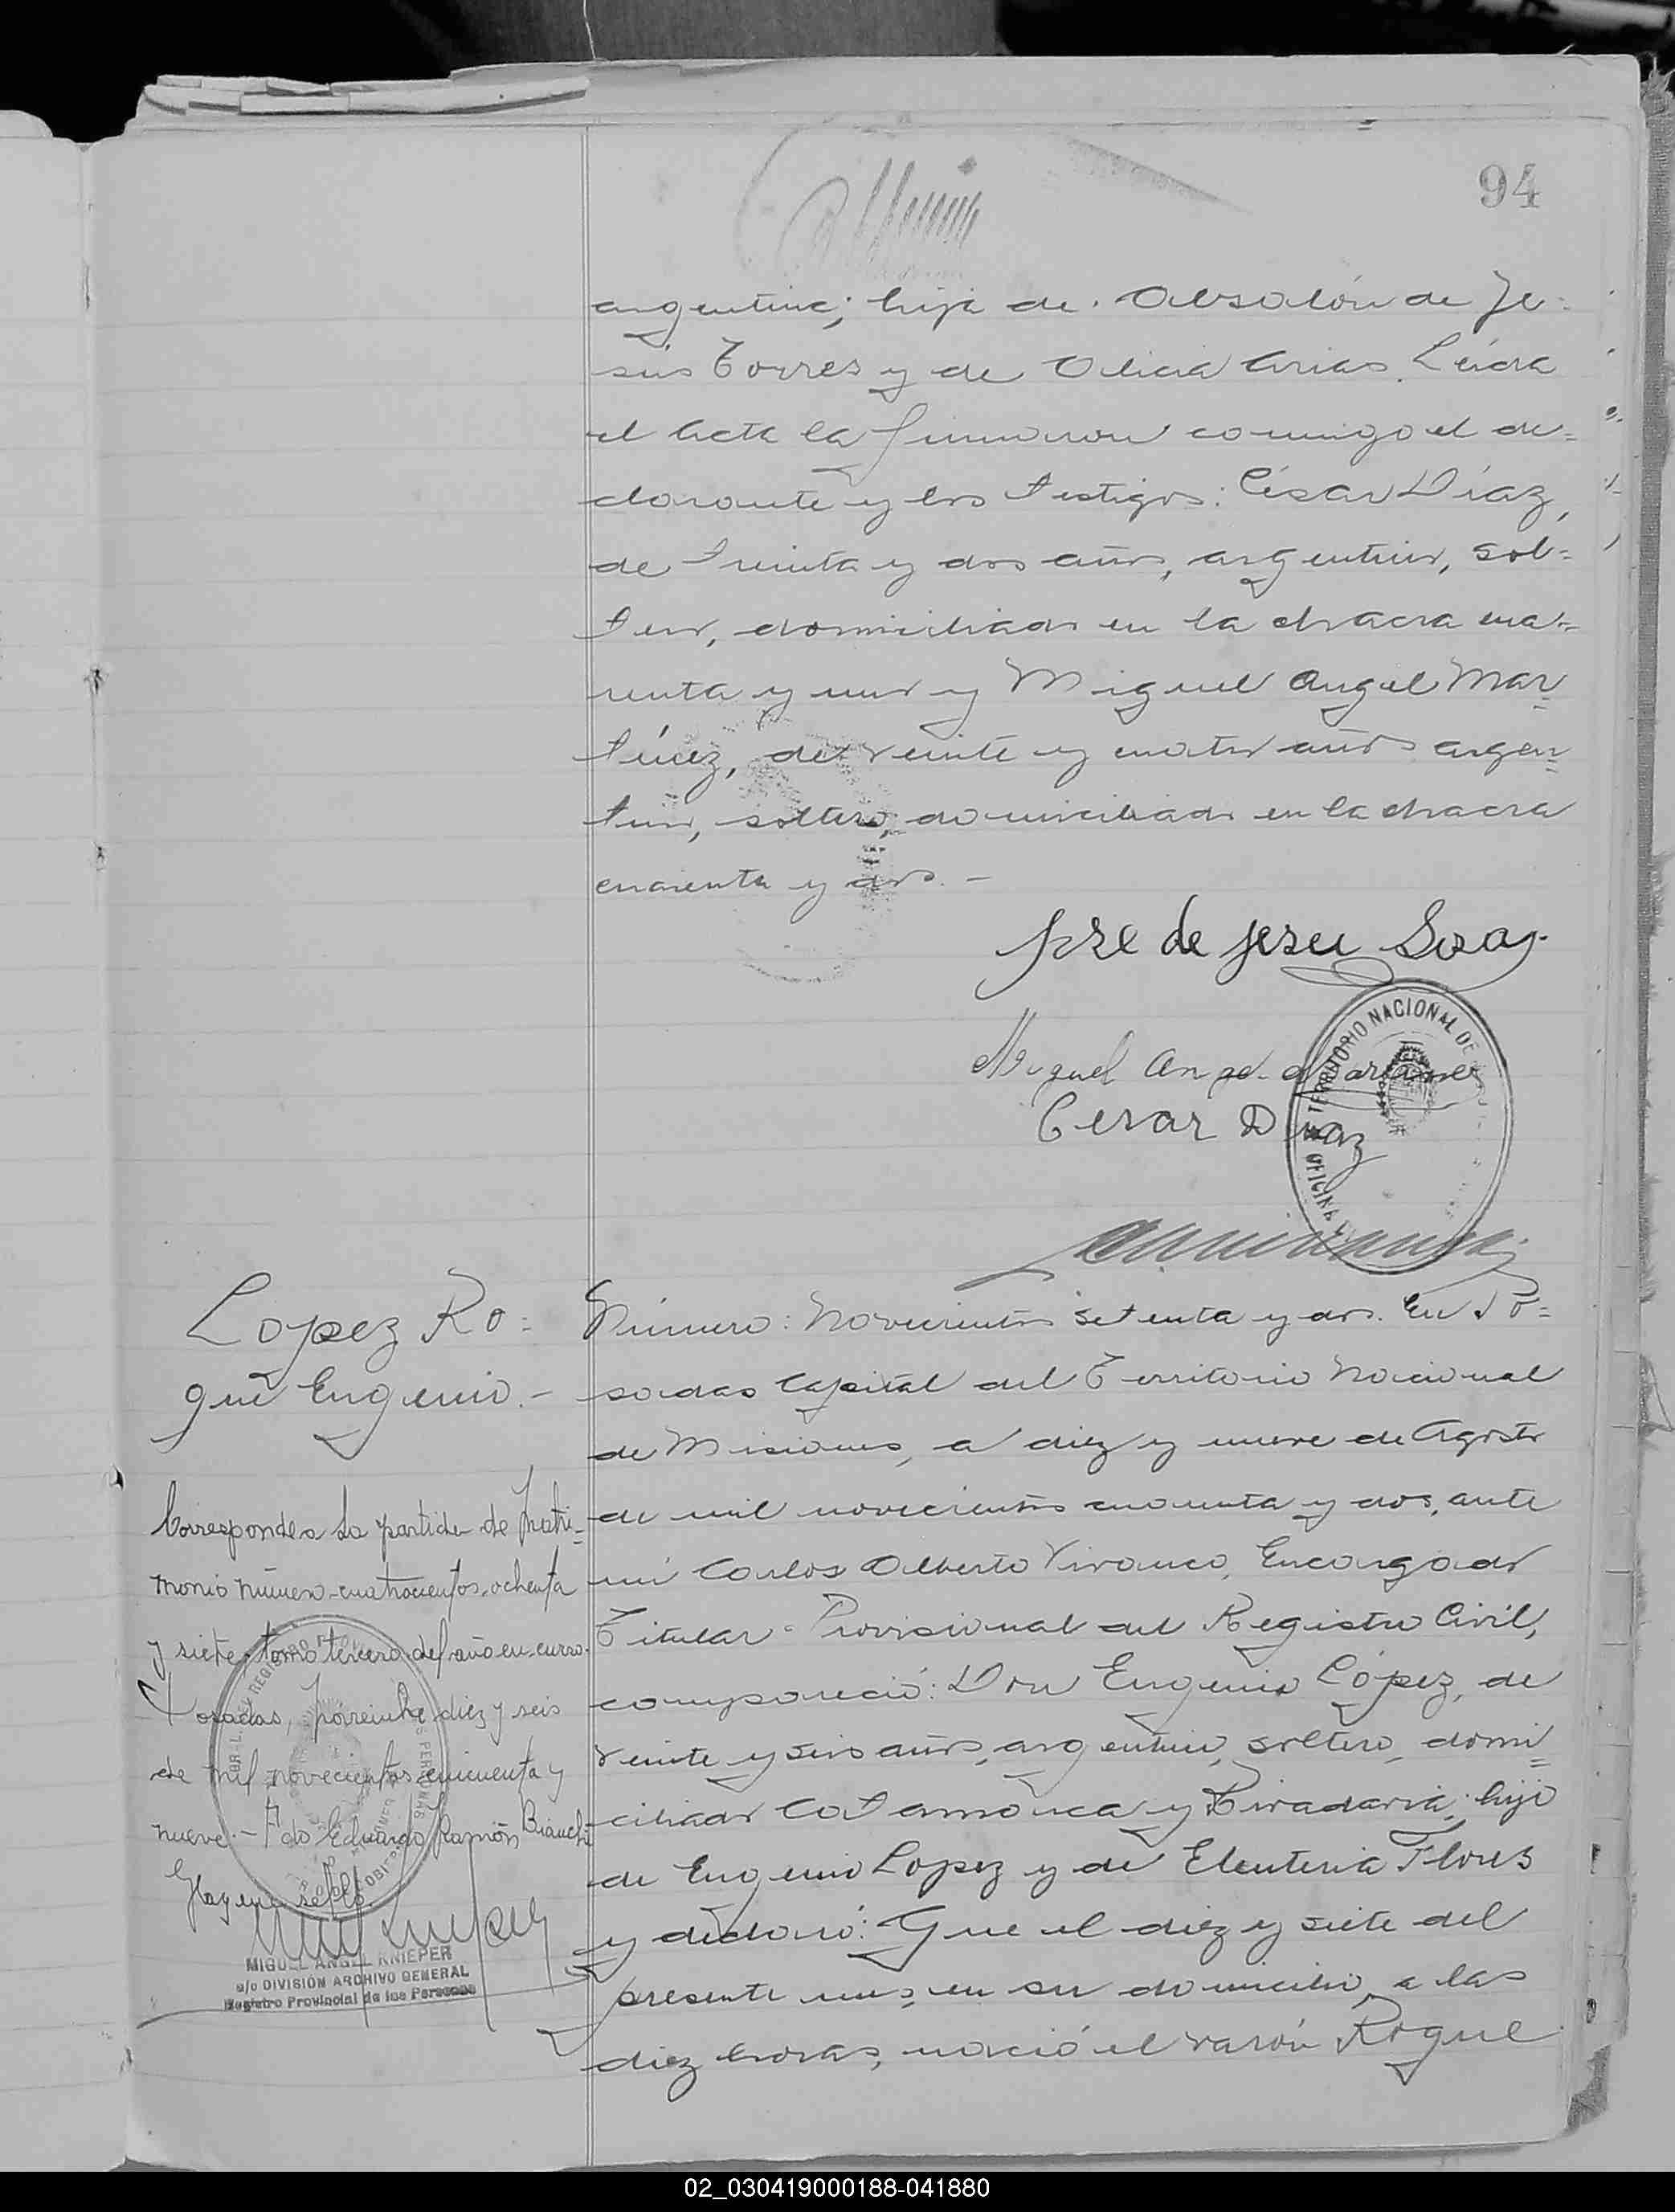 94
argentina; hija de Absalón de Je=
sús Torres y de Alicia Arias. Leída
el Acta la firmaron conmigo el de=
clarante y los testigos: César Díaz,
de treinta y dos años, argentino, sol=
tero, domiciliado en la chacra cua=
renta y uno y Miguel Angel Mar=
tínez, de veinte y cuatro años argen=
tino, soltero, domiciliado en la chacra
cuarenta y dos. -
Jose de Jesu
Miguel Angel Martinez
Cesar Diaz
TERRITORIO NACIONAL DE
OFICINA
Lopez Ro=
que Eugenio.-
Número: Novecientos setenta y dos. En Po=
sadas Capital del Territorio Nacional
de Misiones, a diez y nueve de Agosto
de mil novecientos cuarenta y dos, ante
mí Carlos Alberto Vivanco, Encargado
Titular-Provisional del Registro Civil,
compareció: Don Eugenio López, de
veinte y seis años, argentino, soltero, domi=
ciliado Catamarca y Rivadavia; hijo
de Eugenio Lopez y de Eleuteria Flores
y declaró: Que el diez y siete del
presente mes, en su domicilio, a las
diez horas, nació el varón Roque
Corresponde a la partida de Matri=
monio número cuatrocientos ochenta
y siete tomo tercero del año en curso.
Posadas, diez y seis
de mil novecientos cincuenta y
nueve.- Fdo Eduardo Ramón Bianchi
Hay un sello
MIGUEL ANGEL KNIEPER
a/c DIVISIÓN ARCHIVO GENERAL
Registro Provincial de las Personas
02_030419000188-041880